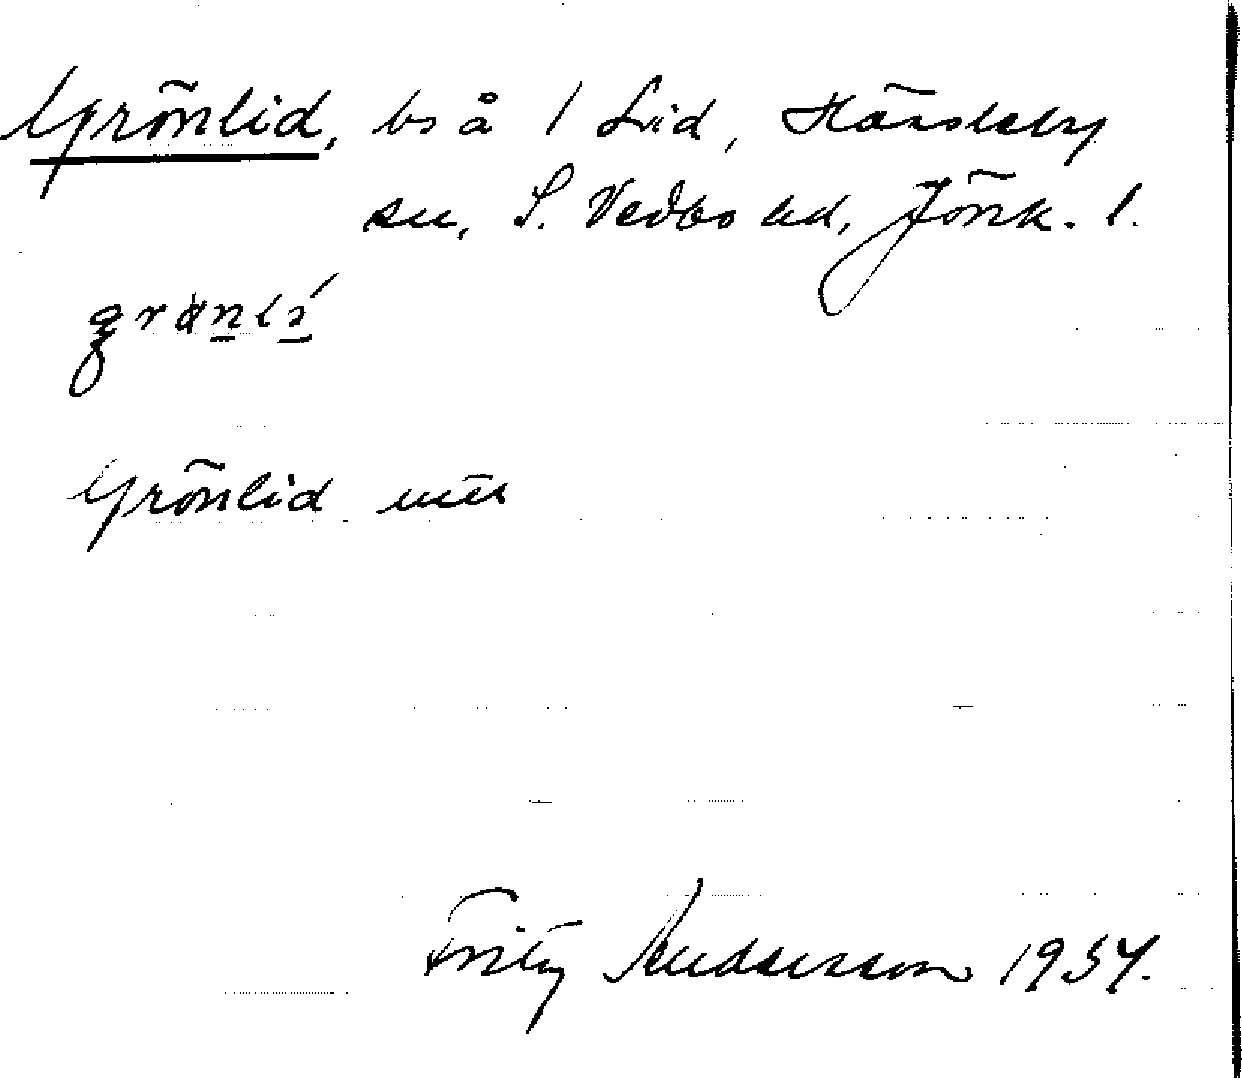 Grönlid, bs å 1 Lid, Hässleby
sn, S. Vedbo hd, Jönk. l.
Grönlid
Fritz Andersson 1934.